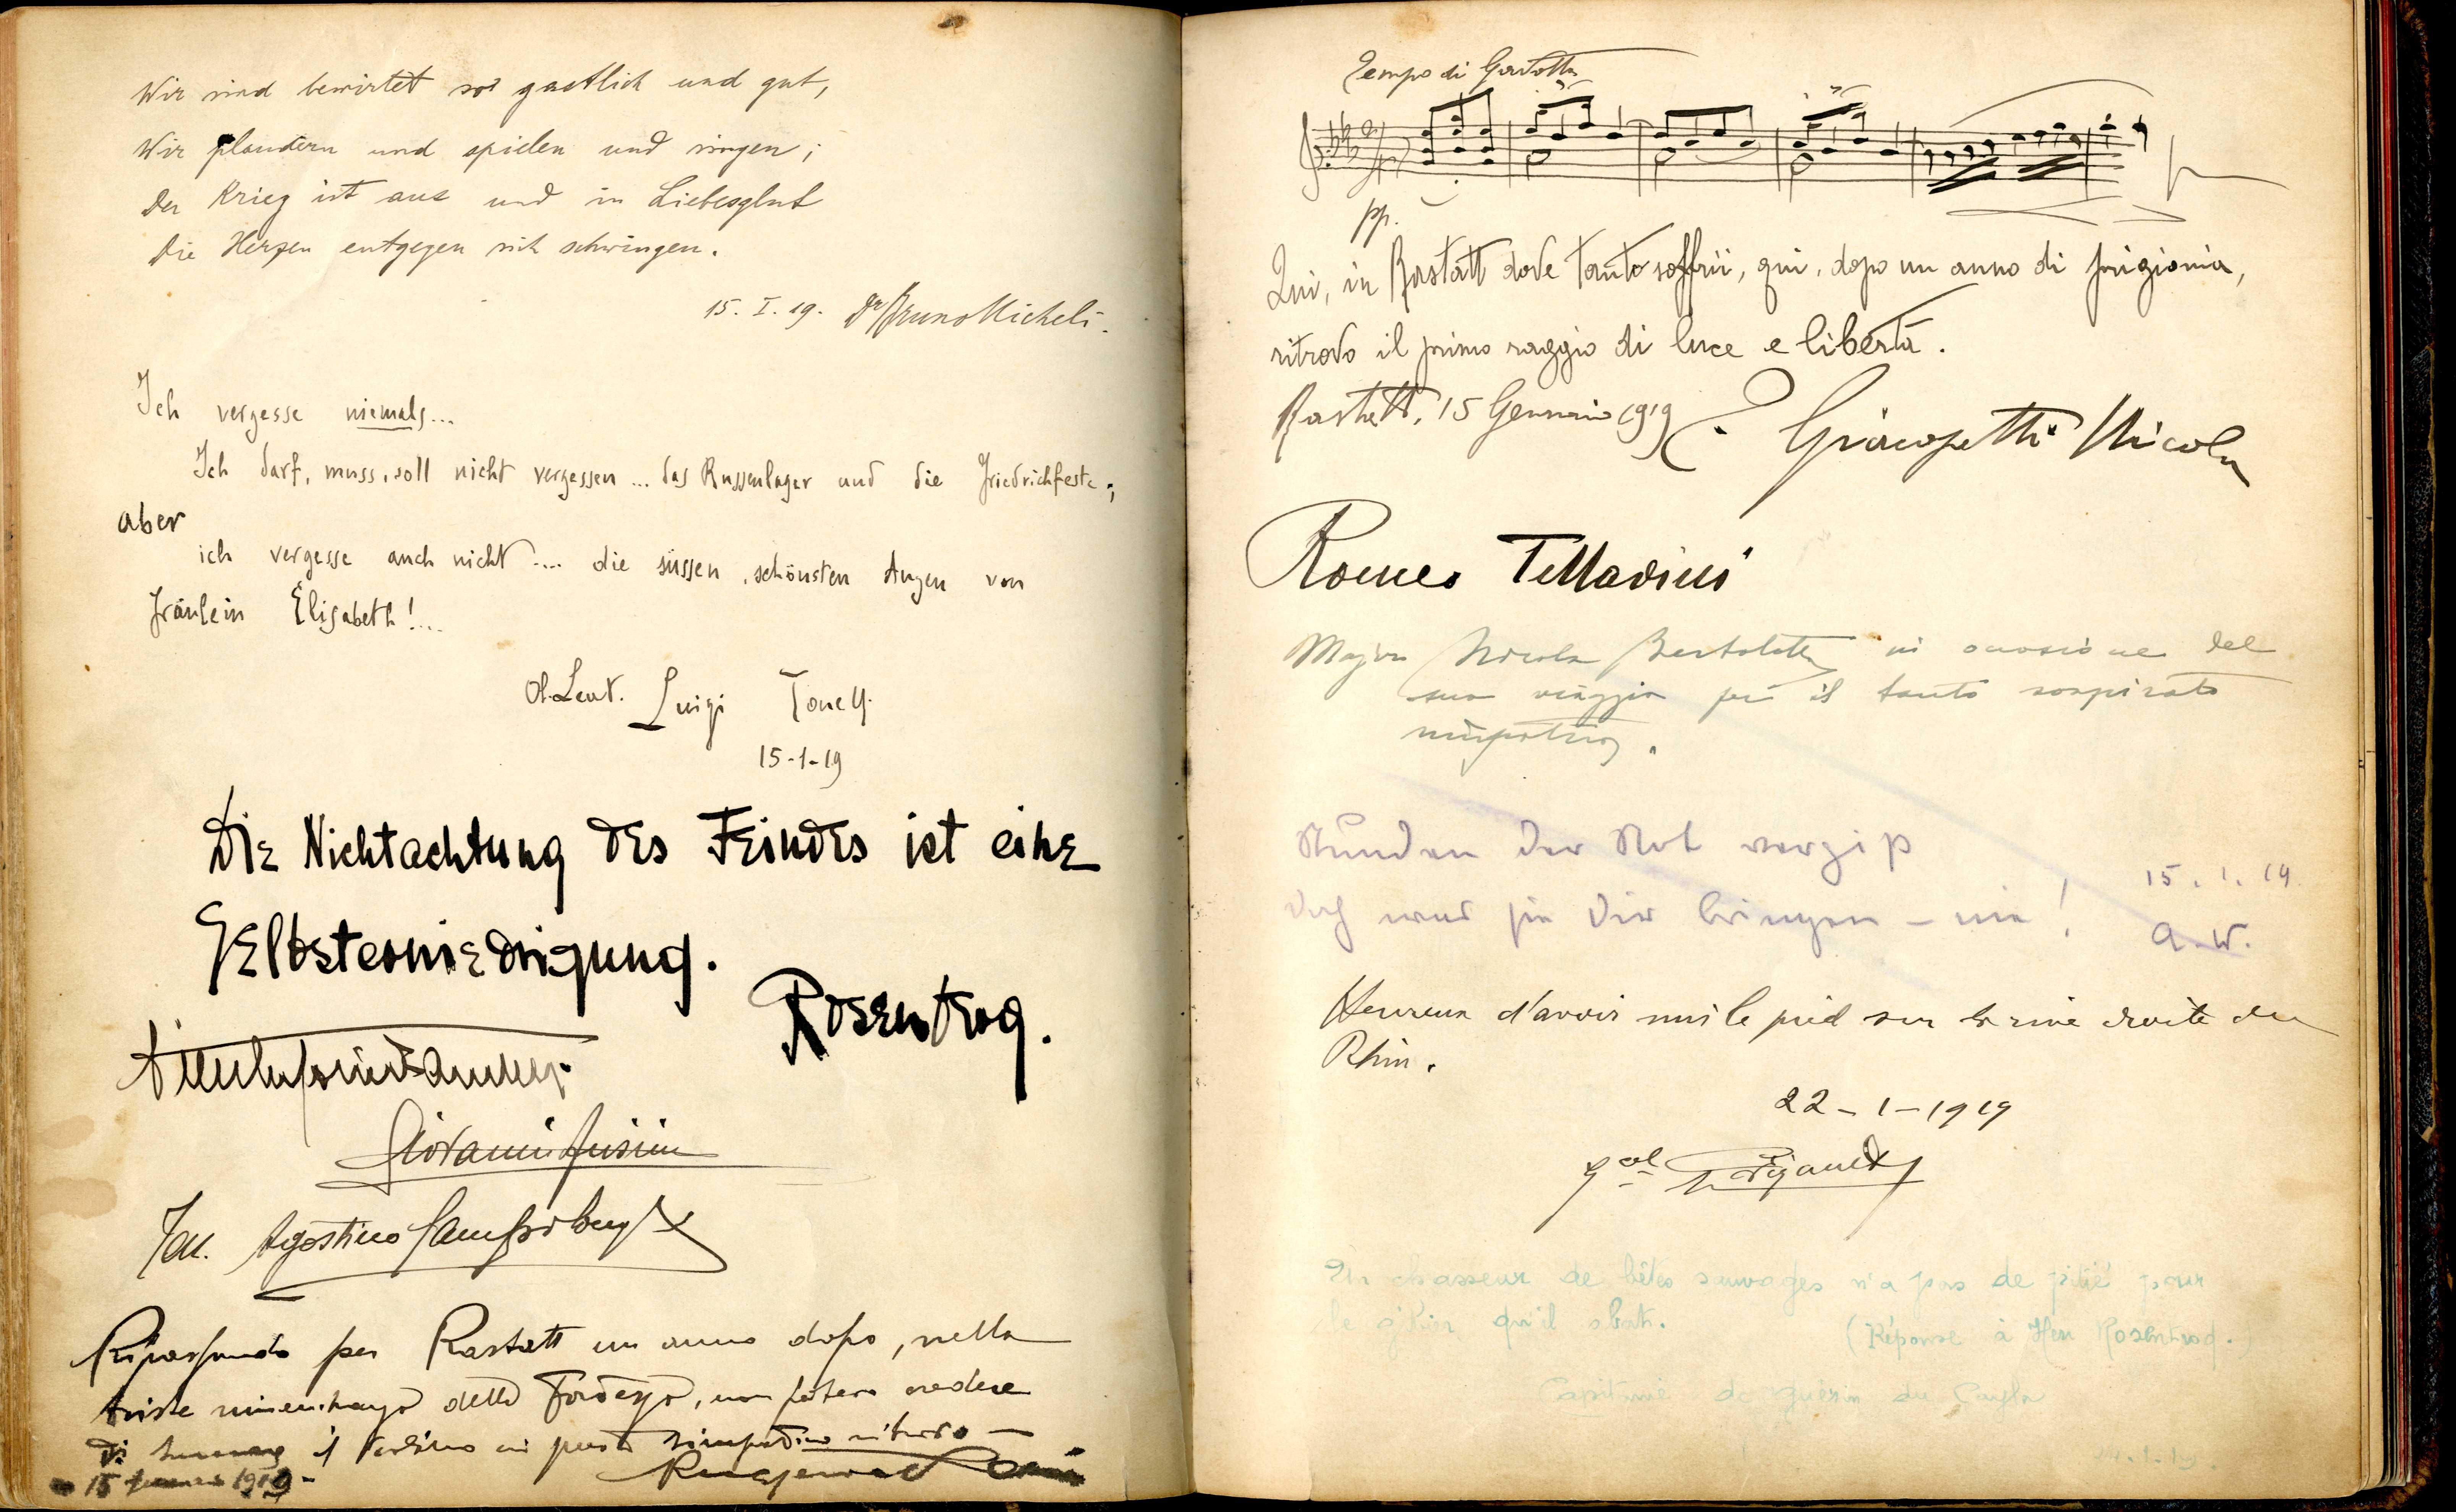 Wir sind bewirtet so gastlich und gut,
Wir plaudern und spielen und singen;
Der Krieg ist aus und in Liebesglut
Die Herzen entgegen sich schwingen.
15. I. 19. Dr Bruno Micheli.
Ich vergesse niemals...
Ich darf, muss, soll nicht vergessen ... das Russenlager und die Friedrichfeste;
aber
ich vergesse auch nicht .... die süssen, schönsten Augen von
Fräulein Elisabeth!...
Ob.Leut. Luigi Tonelli.
15-1-19
Die Nichtachtung des Feindes ist eine
Selbsterniedrigung.
Rosentrog.
Giovanni
Agostino
Ripassando per Rastatt un anno dopo, nella
triste rimembranza della Fortezza, non potevo credere
di il in questo simpatico ritrovo –
15 1919 –
Tempo di Gavotta
pp.
Qui, in Rastatt dove tanto soffrii, qui, dopo un anno di prigionia,
ritrovo il primo raggio di luce e libertà.
Rastatt, 15 Gennaio 1919 Giacopetti Nicola
Romeo
Major Nicola Bertolotti in occasione del
suo viaggio per il tanto sospirato
rimpatrio.
Stunden der Not vergiß
doch was sie dir bringen – nie!
15. 1. 19.
A.W.
Heureux d'avoir mis le pied sur la rive droite du
Rhin.
22-1-1919
Gal
Un chasseur de bêtes sauvages n'a pas de pitié pour
le gibier qu'il abat.
(Réponse à Herr Rosentrog.)
Capitaine de Guérin du Cayla